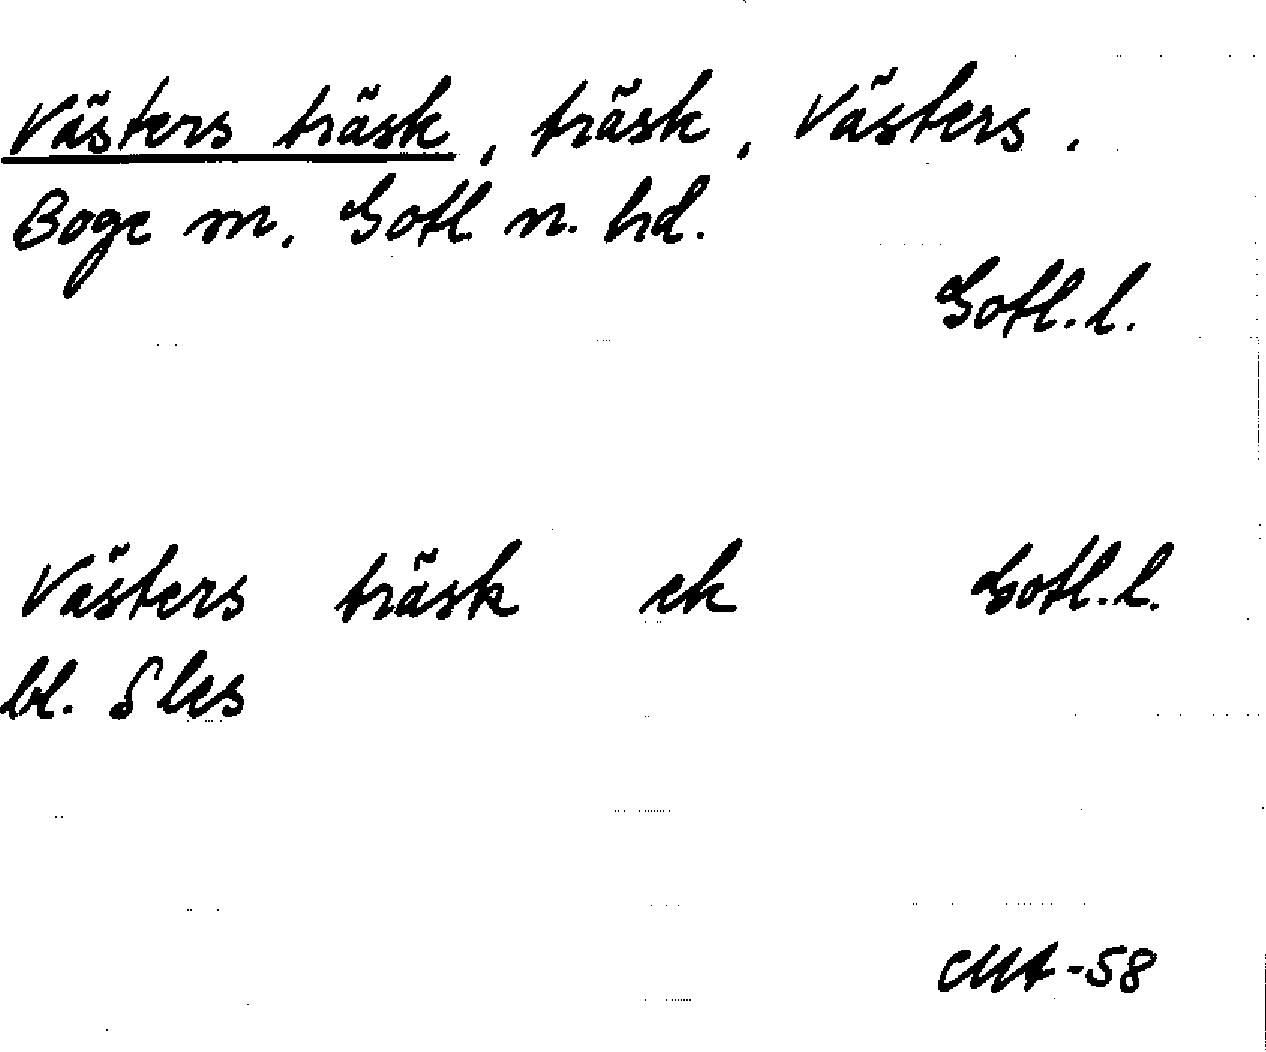 Västers träsk, träsk, Västers.
Boge sn, Gotl n. hd.
Gotl. l.
Västers träsk ek Gotl. l.
bl. Sles
MA-58